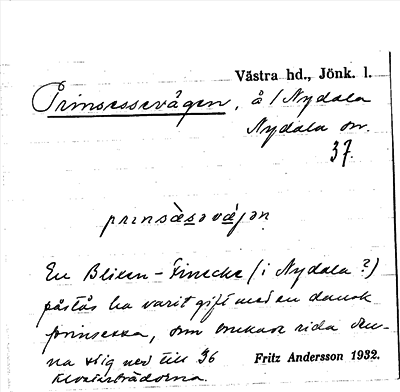 Västra hd., Jönk. l.
Prinsessevägen, å / Nydala
Nydala sn.
37.
prinsὰsəvὰjən
En Blixen-Finecke (i Nydala?)
påstås ha varit gift med en dansk
prinsessa, som brukade rida den-
na stig ned till 36
Klosterbröderna.
Fritz Andersson 1932.